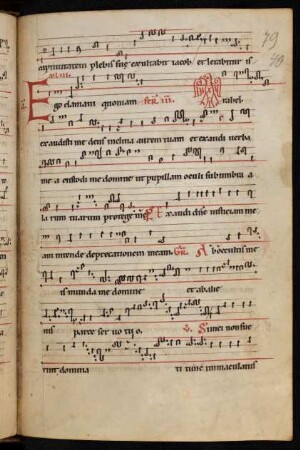 79
captivitatem plebis sue exultabit iacob et letabitur is
rahel
Ego clamavi quoniam Fer. iii.
exaudisti me deus inclina aurem tuam et exaudi verba
mea custodi me domine ut pupillam oculi sub umbra a
larum tuarum protege me Ps Exaudi dñe iusticiam me
am intende deprecationem meam. Gr. Ab occultis me
is munda me domine et ab alie
nis parce servo tuo. V. Si mei non fue
rint domina ti tunc immaculatus